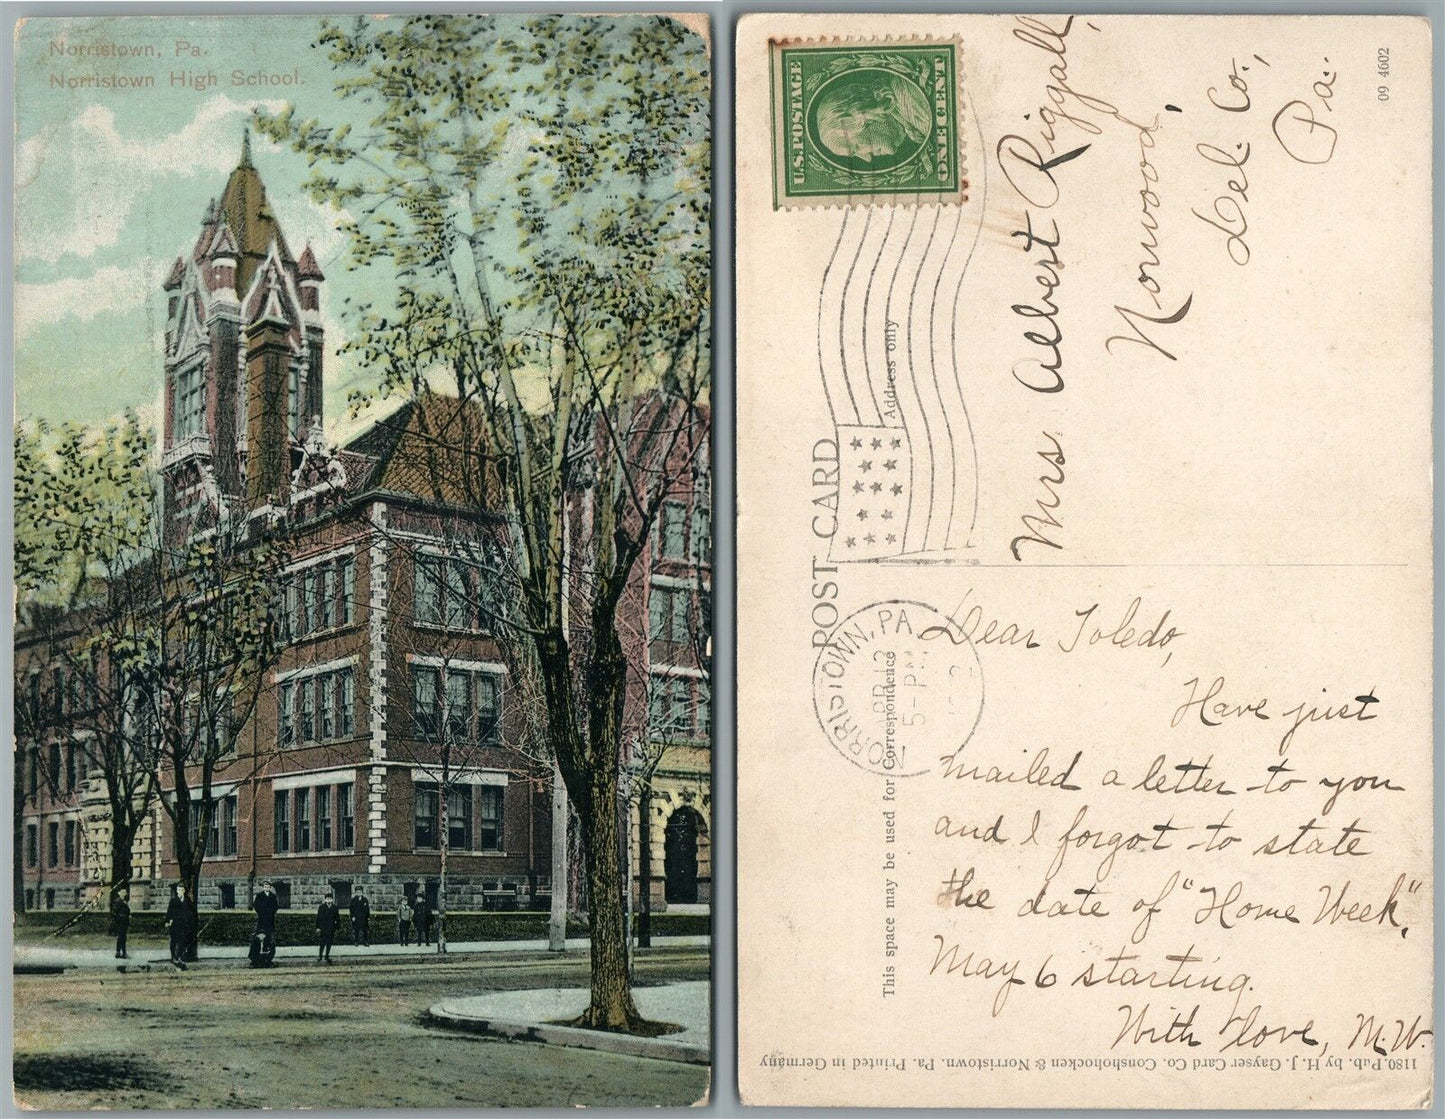 Norristown, Pa.
Norristown High School.
U.S. POSTAGE
ONE CENT
09 4602
Mrs. Albert Riggall,
Norwood,
Del. Co.,
Pa.
POST CARD
Address only
This space may be used for Correspondence
NORRISTOWN, PA.
APR 12
5-PM
Dear Toledo,
Have just
mailed a letter to you
and I forgot to state
the date of "Home Week",
May 6 starting.
With love, M.W.
1180. Pub. by H. J. Gayser Card Co. Conshohocken & Norristown. Pa. Printed in Germany